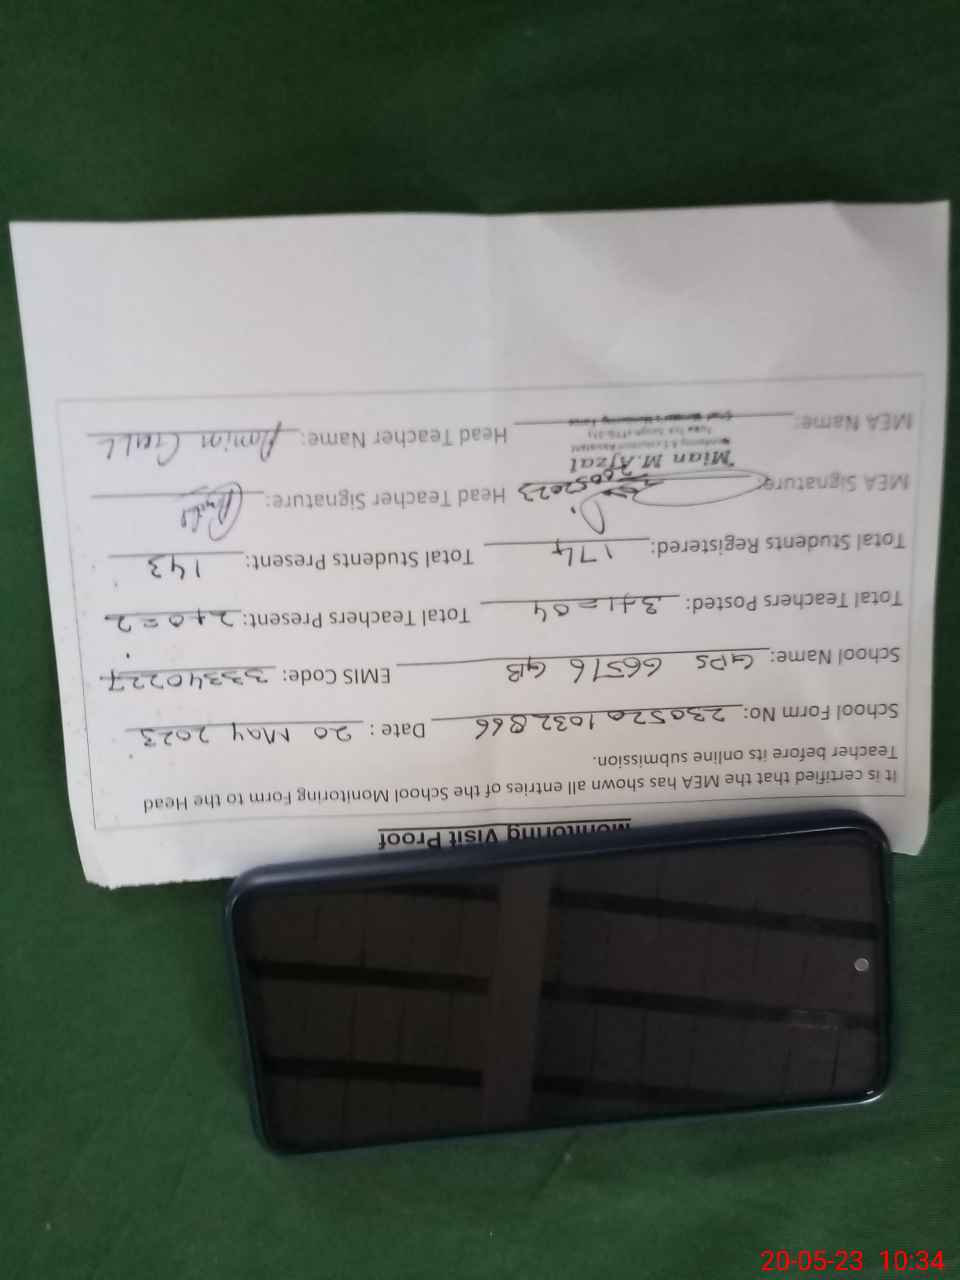 Monitoring Visit Proof
It is certified that the MEA has shown all entries of the School Monitoring Form to the Head
Teacher before its online submission.
School Form No: 2305201032866 Date: 20 May 2023
School Name: GPS 665/6 GB EMIS Code: 33340227
Total Teachers Posted: 3+1=04 Total Teachers Present: 2+0=2
Total Students Registered: 174 Total Students Present: 143
MEA Signature: 20052023 Head Teacher Signature:
Mian M.Afzal
Monitoring & Evaluation Assistant
MEA Name: Head Teacher Name:
20-05-23 10:34